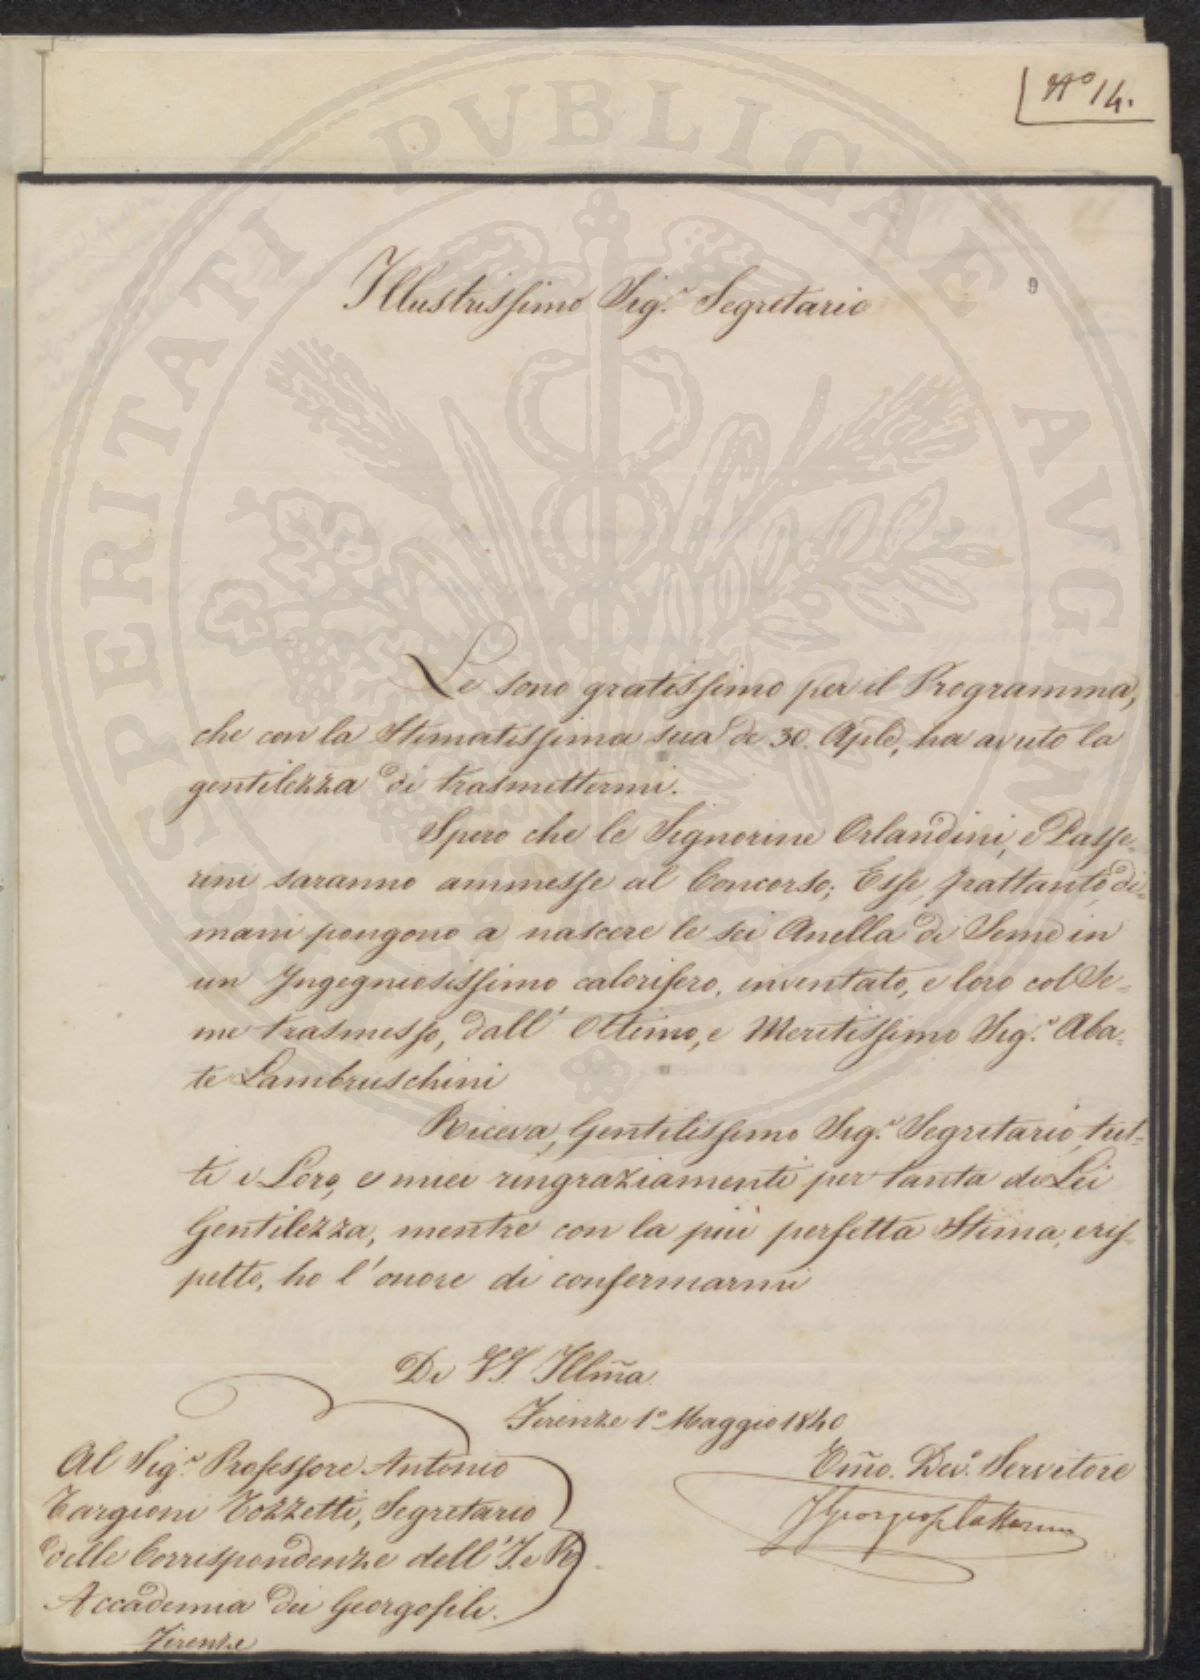 N.º 14.
9
Illustrissimo Sig.r Segretario
Le sono gratissimo per il Programma,
che con la Stimatissima sua de 30. Aple, ha avuto la
gentilezza di trasmettermi.
Spero che le Signorine Orlandini, e Passe=
rini saranno ammesse al Concorso; Esse, frattanto, di=
mani pongono a nascere le sei Anella di Seme in
un Ingegniosissimo calorifero, inventato, e loro col Se=
me trasmesso, dall' Ottimo, e Meritissimo Sig.r Aba=
te Lambruschini
Riceva, Gentilissimo Sig.r Segretario, tut=
ti i Loro, e miei ringraziamenti per tanta di Lei
Gentilezza, mentre con la più perfetta Stima, e ris=
petto, ho l'onore di confermarmi
Di VS. Illm̃a.
Firenze 1º Maggio 1840
Um̃o. Dev.º Servitore
Al Sig.r Professore Antonio
Targioni Tozzetti, Segretario
delle Corrispondenze dell' I. e R.
Accademia dei Georgofili.
Firenze
PROSPERITATI PVBLICAE AVGENDAE